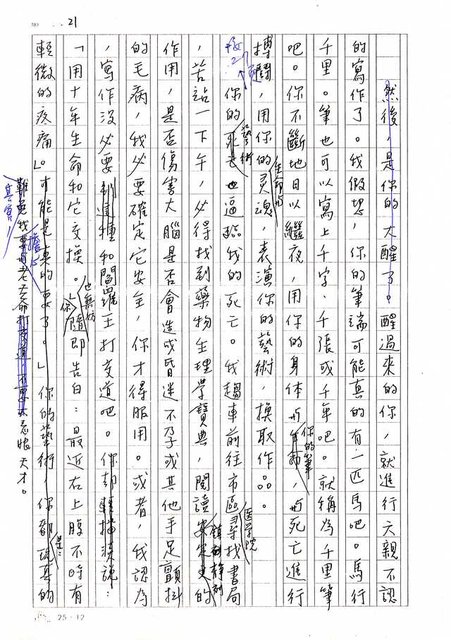 21
然後，是你的大醒了。醒過來的你，就進行六親不認
的寫作了。我假想，你的筆端可能真的有一匹馬吧。馬行
千里。筆也可以寫上千字、千張或千年吧。就稱為千里筆
吧。你不斷地日以繼夜，用你的身体 你的筆 与死亡進行
搏鬪，用你的 生命的 灵魂，表演你的藝術，換取作品。
你的死亡 藝術 也逼臨我的死亡。我趨車前往市區尋找書局 医学院
，苦站一下午，必得找到藥物生理學寶典，閱讀安定的 鎮制静剂
作用，是否傷害大腦是否會造成昏迷不孕或其他手足顫抖
的毛病，我必要確定它安全，你才得服用。或者，我認為
，寫作沒必要到這種和閻羅王打交道吧。你却輕描淡說：
「用十年生命和它交換。」你 也無妨 隨即告白：最近右上腹不時有
輕微的疼痛。可能是真的要了。」你的藝術，你都認真的
其實，
天才。
25×12